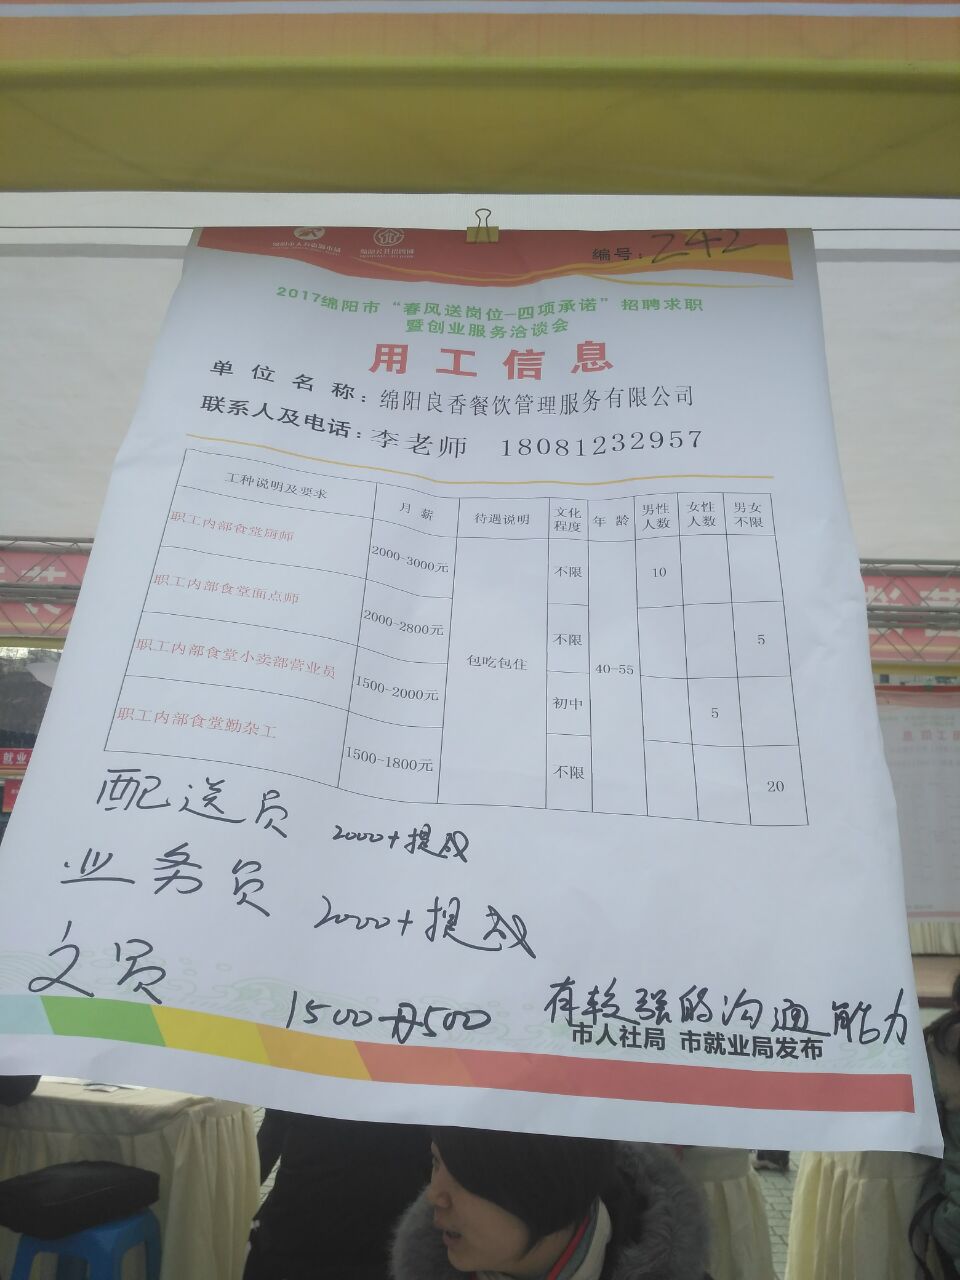 编号：242
2017绵阳市“春风送岗位-四项承诺”招聘求职
暨创业服务洽谈会
用工信息
单位名称：绵阳良香餐饮管理服务有限公司
联系人及电话：李老师 18081232957
工种说明及要求 月薪 待遇说明 文化程度 年龄 男性人数 女性人数 男女不限
职工内部食堂厨师 2000-3000元 包吃包住 不限 40-55 10
职工内部食堂面点师 2000-2800元 不限 5
职工内部食堂小卖部营业员 1500-2000元 初中 5
职工内部食堂勤杂工 1500-1800元 不限 20
配送员 2000+提成
业务员 2000+提成
文员 1500-2500 有较强的沟通能力
市人社局 市就业局发布